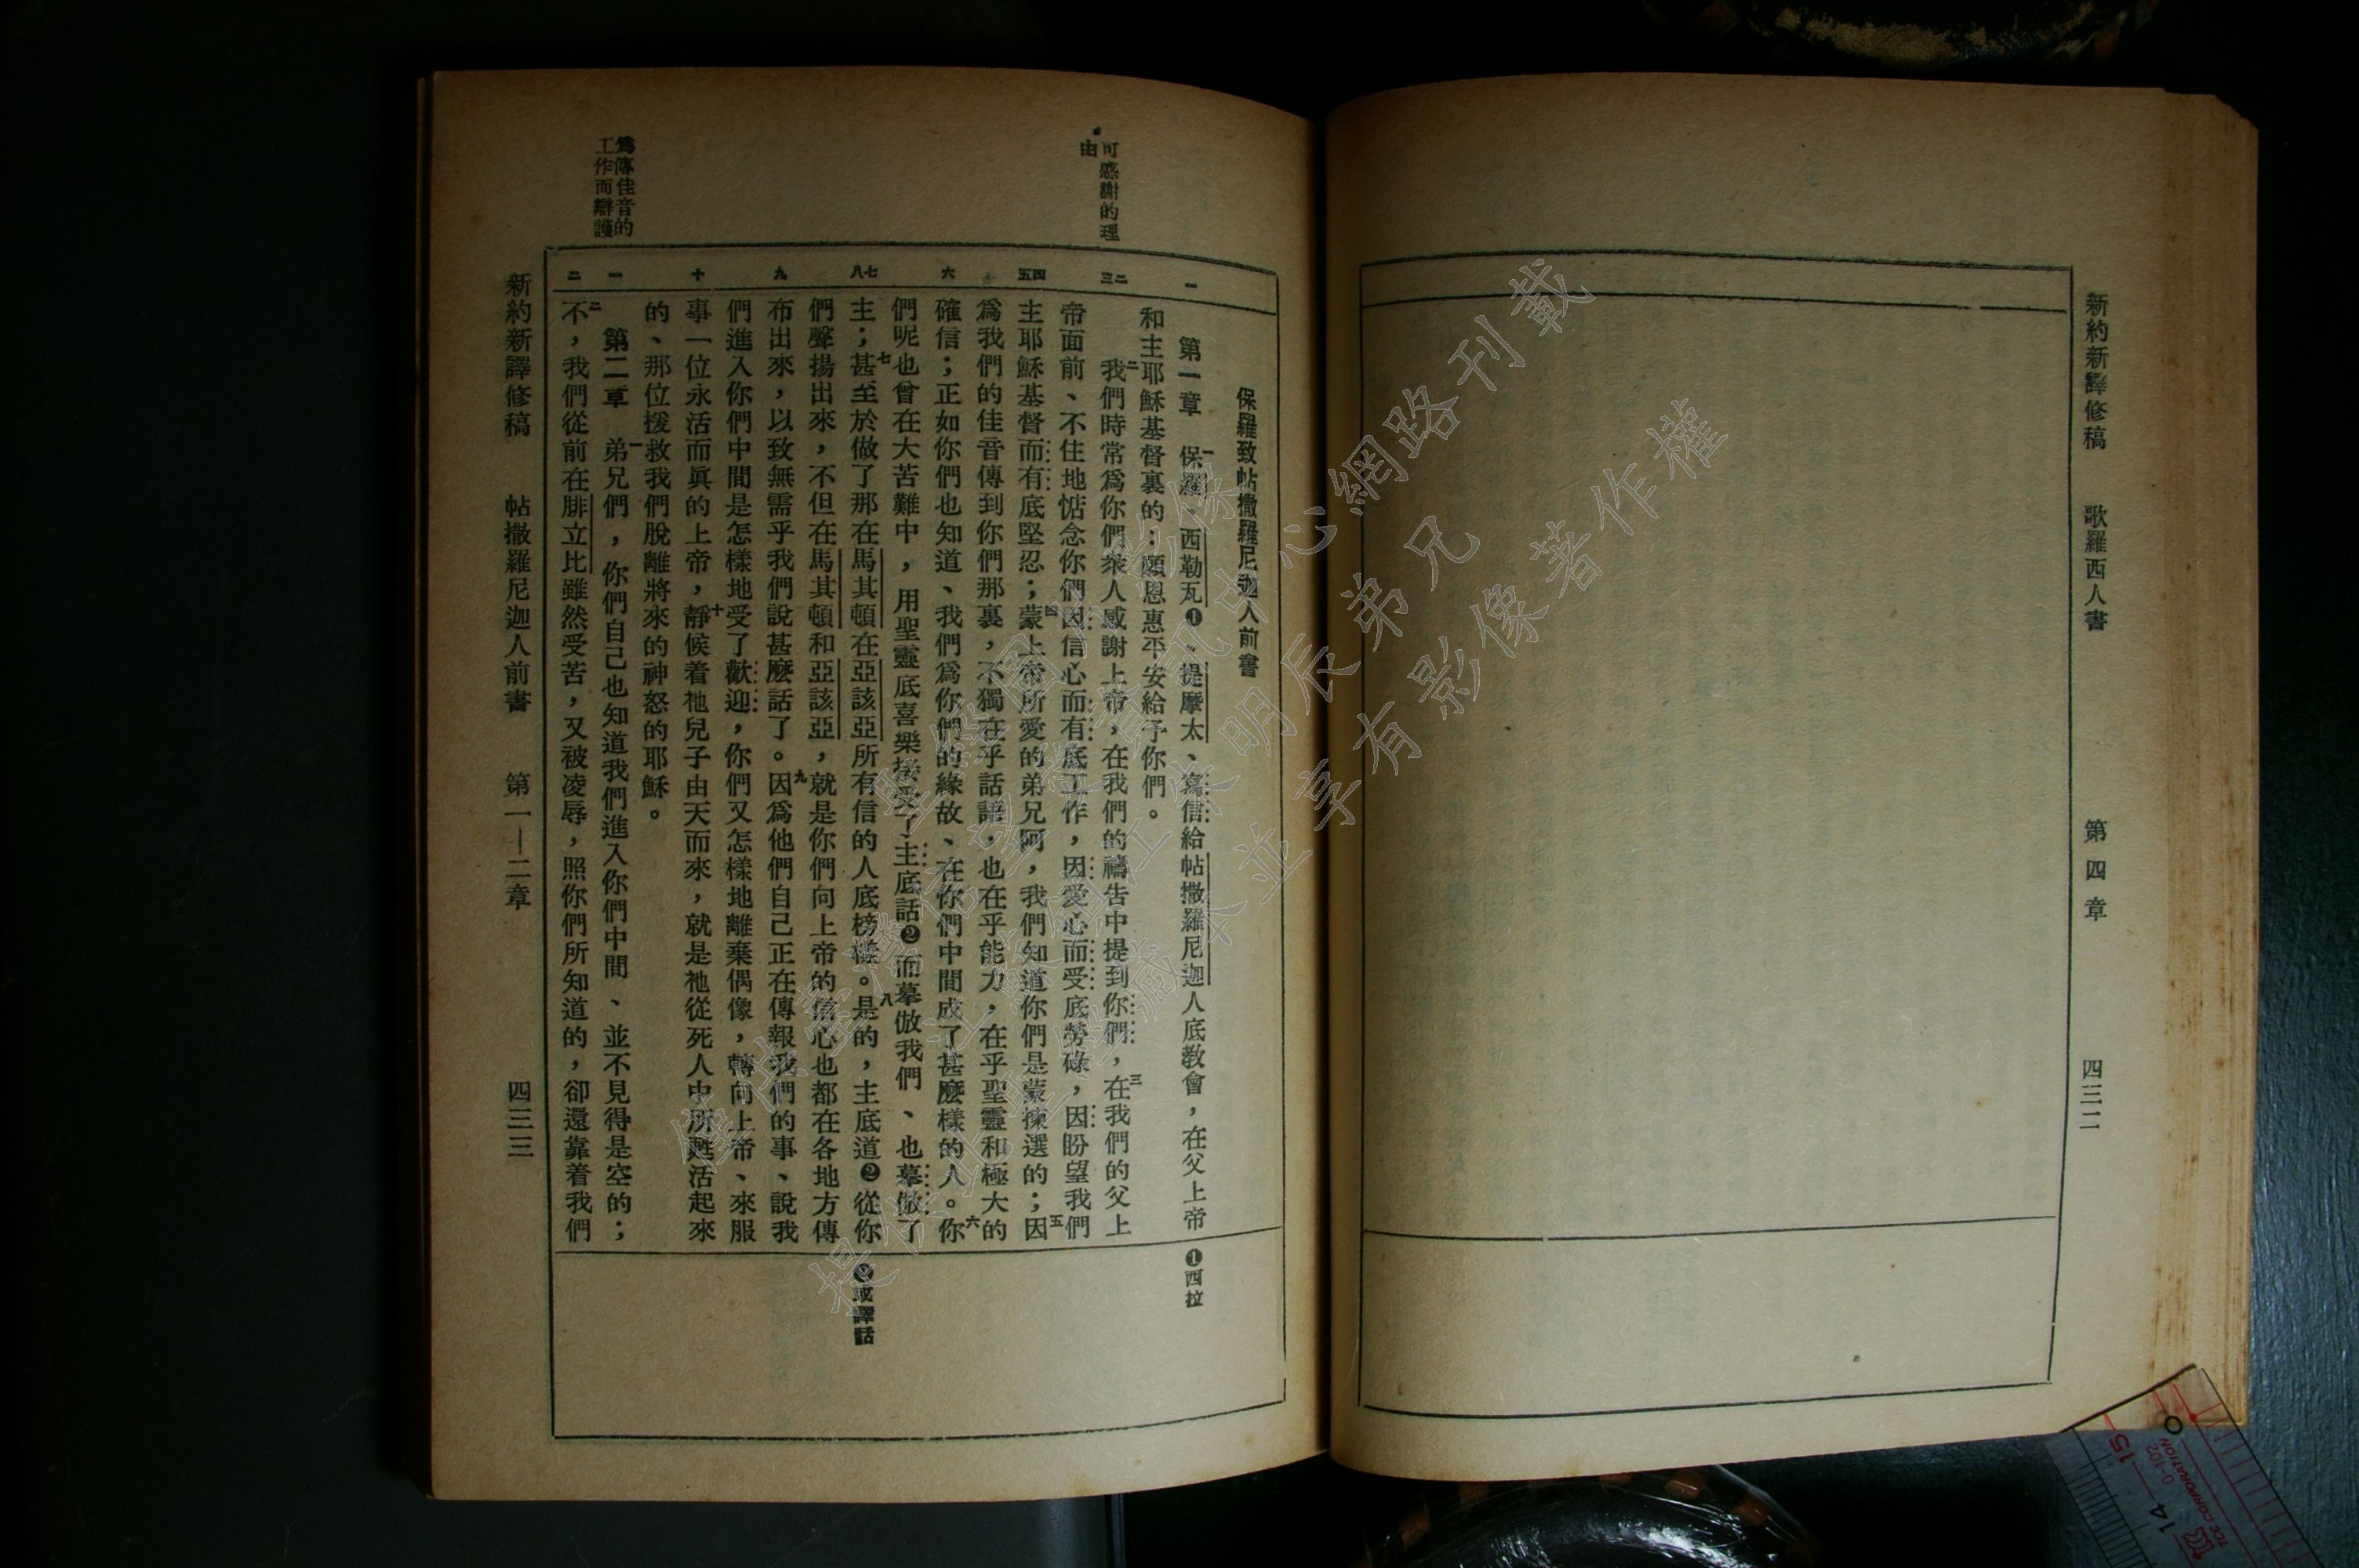 新約新譯修稿 歌羅西人書 第四章 四三二
可感謝的理
由
為傳佳音的
工作而辯護
一
二
三
四
五
六
七
八
九
十
一
二
保羅致帖撒羅尼迦人前書
第一章 一保羅、西勒瓦❶、提摩太、寫信給帖撒羅尼迦人底教會，在父上帝
和主耶穌基督裏的：願恩惠平安給予你們。
二我們時常為你們衆人感謝上帝，在我們的禱告中提到你們，三在我們的父上
帝面前、不住地惦念你們因信心而有底工作，因愛心而受底勞碌，因盼望我們
主耶穌基督而有底堅忍；四蒙上帝所愛的弟兄阿，我們知道你們是蒙揀選的；五因
為我們的佳音傳到你們那裏，不獨在乎話語，也在乎能力，在乎聖靈和極大的
確信；正如你們也知道、我們為你們的緣故、在你們中間成了甚麼樣的人。六你
們呢也曾在大苦難中，用聖靈底喜樂接受了主底話❷而摹倣我們、也摹倣了
主；七甚至於做了那在馬其頓在亞該亞所有信的人底榜樣。八是的，主底道❷從你
們聲揚出來，不但在馬其頓和亞該亞，就是你們向上帝的信心也都在各地方傳
布出來，以致無需乎我們說甚麼話了。九因為他們自己正在傳報我們的事、說我
們進入你們中間是怎樣地受了歡迎，你們又怎樣地離棄偶像，轉向上帝、來服
事一位永活而眞的上帝，十靜候着祂兒子由天而來，就是祂從死人中所甦活起來
的、那位援救我們脫離將來的神怒的耶穌。
第二章 一弟兄們，你們自己也知道我們進入你們中間、並不見得是空的；
二不，我們從前在腓立比雖然受苦，又被凌辱，照你們所知道的，卻還靠着我們
❶西拉
❷或譯話
新約新譯修稿 帖撒羅尼迦人前書 第一—二章 四三三
15
14